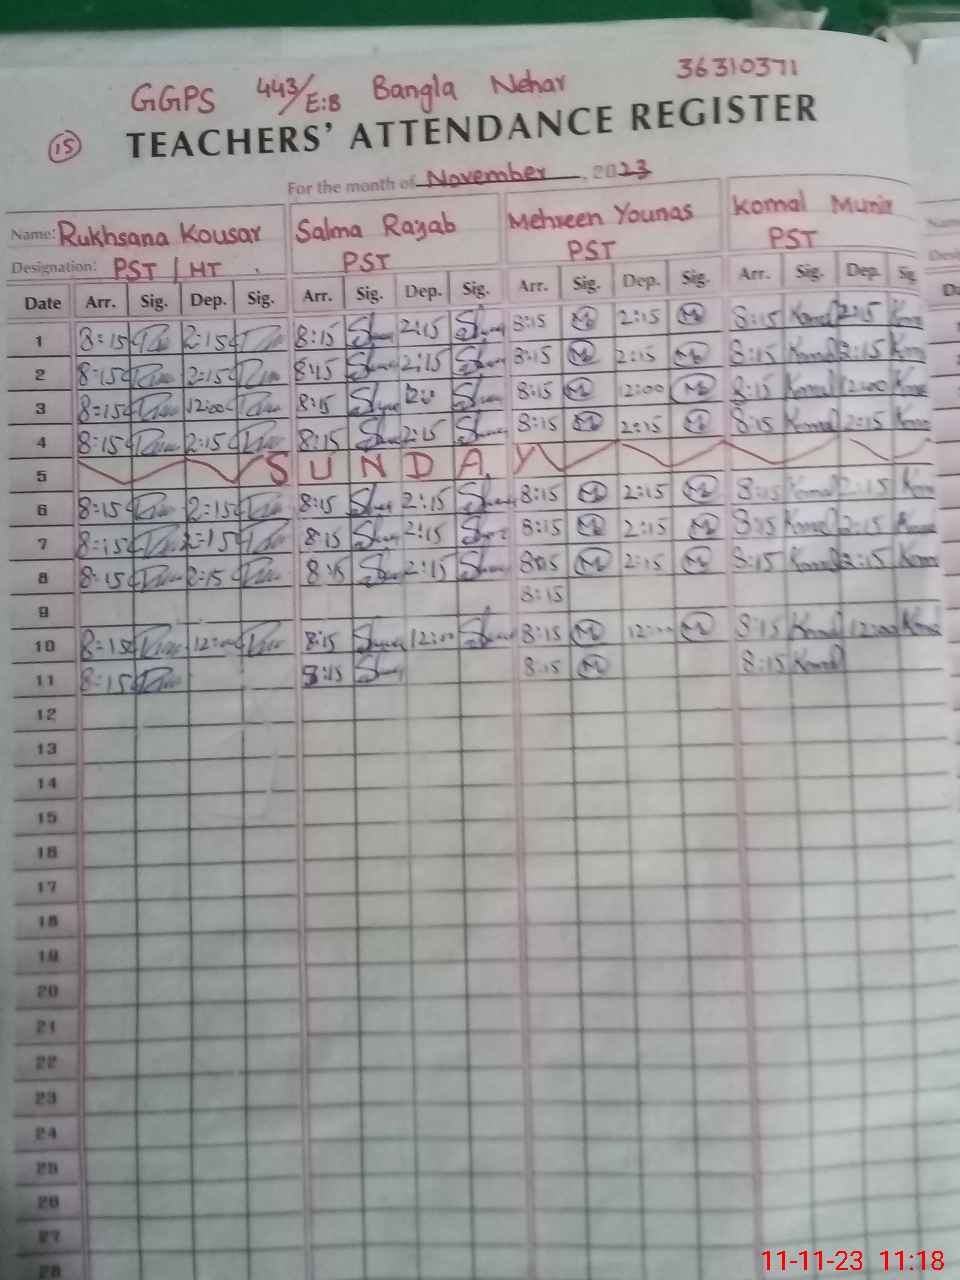 GGPS 443/E:B Bangla Nehar 36310371
15 TEACHERS' ATTENDANCE REGISTER
For the month of November, 2023
Name: Rukhsana Kousar Salma Razab Mehreen Younas Komal Munir
Designation: PST / HT PST PST PST
Date Arr. Sig. Dep. Sig. Arr. Sig. Dep. Sig. Arr. Sig. Dep. Sig. Arr. Sig. Dep. Sig
1 8:15 2:15 8:15 2:15 8:15 M 2:15 M 8:15 Komal 2:15
2 8:15 2:15 8:15 2:15 8:15 M 2:15 M 8:15 Komal 2:15
3 8:15 12:00 8:15 8:15 M 12:00 M 8:15 Komal 12:00
4 8:15 2:15 8:15 2:15 8:15 M 2:15 M 8:15 Komal 2:15
5 SUNDAY
6 8:15 2:15 8:15 2:15 8:15 M 2:15 M 8:15 Komal 2:15
7 8:15 2:15 8:15 2:15 8:15 M 2:15 M 8:15 Komal 2:15
8 8:15 2:15 8:15 2:15 8:15 M 2:15 M 8:15 Komal 2:15
9 8:15
10 8:15 12:00 8:15 12:00 8:15 M 12:00 M 8:15 Komal 12:00
11 8:15 8:15 8:15 M 8:15 Komal
12
13
14
15
16
17
18
19
20
21
22
23
24
25
26
27
28
11-11-23 11:18